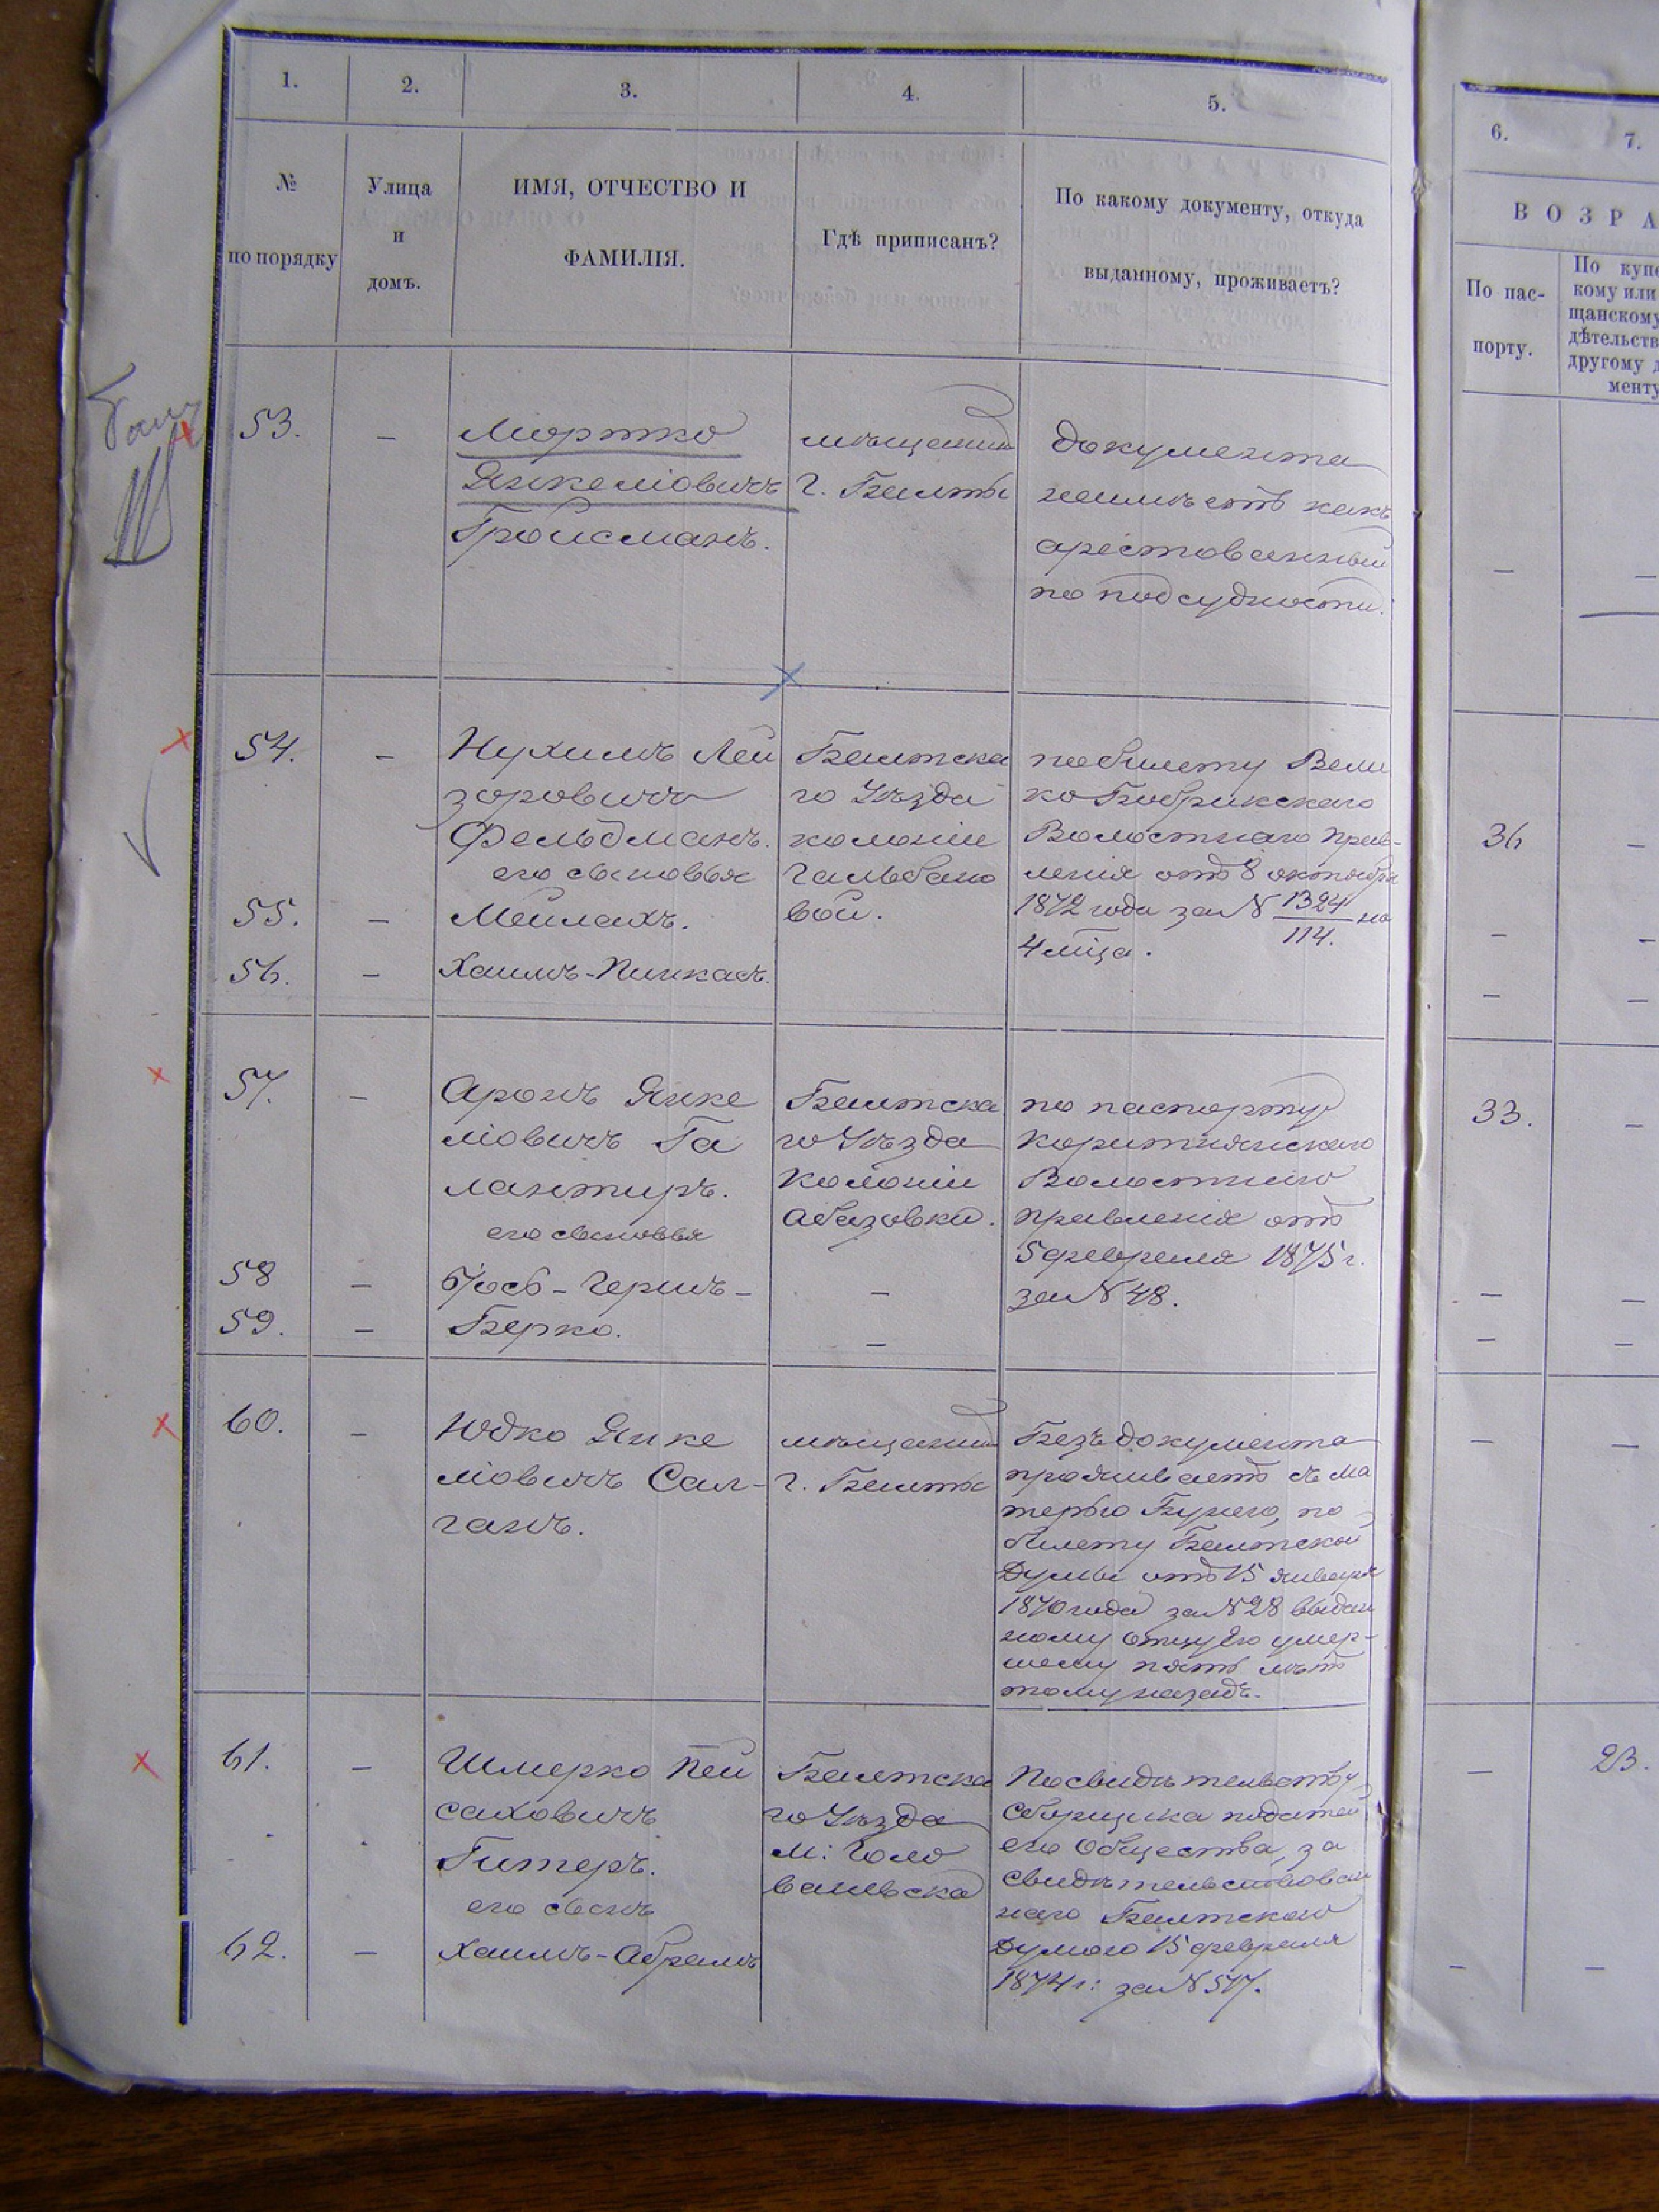 1.
2.
3.
4.
5.
6.
7.
№
по порядку
Улица
и
домъ.
ИМЯ, ОТЧЕСТВО И
ФАМИЛІЯ.
Гдѣ приписанъ?
По какому документу, откуда
выданному, проживаетъ?
ВОЗРА
По пас-
порту.
По купе
кому или
щанскому
дѣтельств
другому д
менту
53.
—
Мортко
Янкеліовичъ
Гройсманъ.
мѣщанинъ
г. Балты
документа
неимѣетъ какъ
арестованный
по подсудности.
—
—
54.
—
Нухимъ Лей
зоровичъ
Фельдманъ.
его сыновья
55.
—
Мейлахъ.
56.
—
Хаимъ-Пинкасъ.
Балтска
го Уѣзда
колоніи
Гальбино
вой.
по билету Вели
ко Бобрикскаго
Волостнаго прав-
ленія отъ 8 октября
1872 года за № 1324
114. на
4 мѣца.
36
—
—
—
—
—
57.
—
Аронъ Янке
ліовичъ Га
лантиръ.
его сыновья
58
—
Іось-Гершъ-
59.
—
Берко.
Балтска
го Уѣзда
Колоніи
Абазовки.
—
—
по паспорту
Коритнянскаго
Волостного
правленія отъ
5 февраля 1875 г.
за № 48.
33.
—
—
—
—
—
60.
—
Юдко Янке
ліовичъ Сал-
ганъ.
мѣщанинъ
г. Балты
Безъ документа
проживаетъ съ ма
терью Бунею, по
билету Балтской
Думы отъ 15 января
1870 года за № 28 выдан
ному отцу Его умер-
шему пять лѣтъ
тому назадъ.
—
—
61.
—
Шмерко Пей
саховичъ
Гитеръ.
его сынъ
62.
—
Хаимъ-Абрамъ
Балтска
го Уѣзда
М: Голо
ваневска
По свидѣтельству
сборщика податей
его Общества, за
свидѣтельствован
наго Балтского
Думою 15 февраля
1874 г: за № 577.
—
23.
—
—